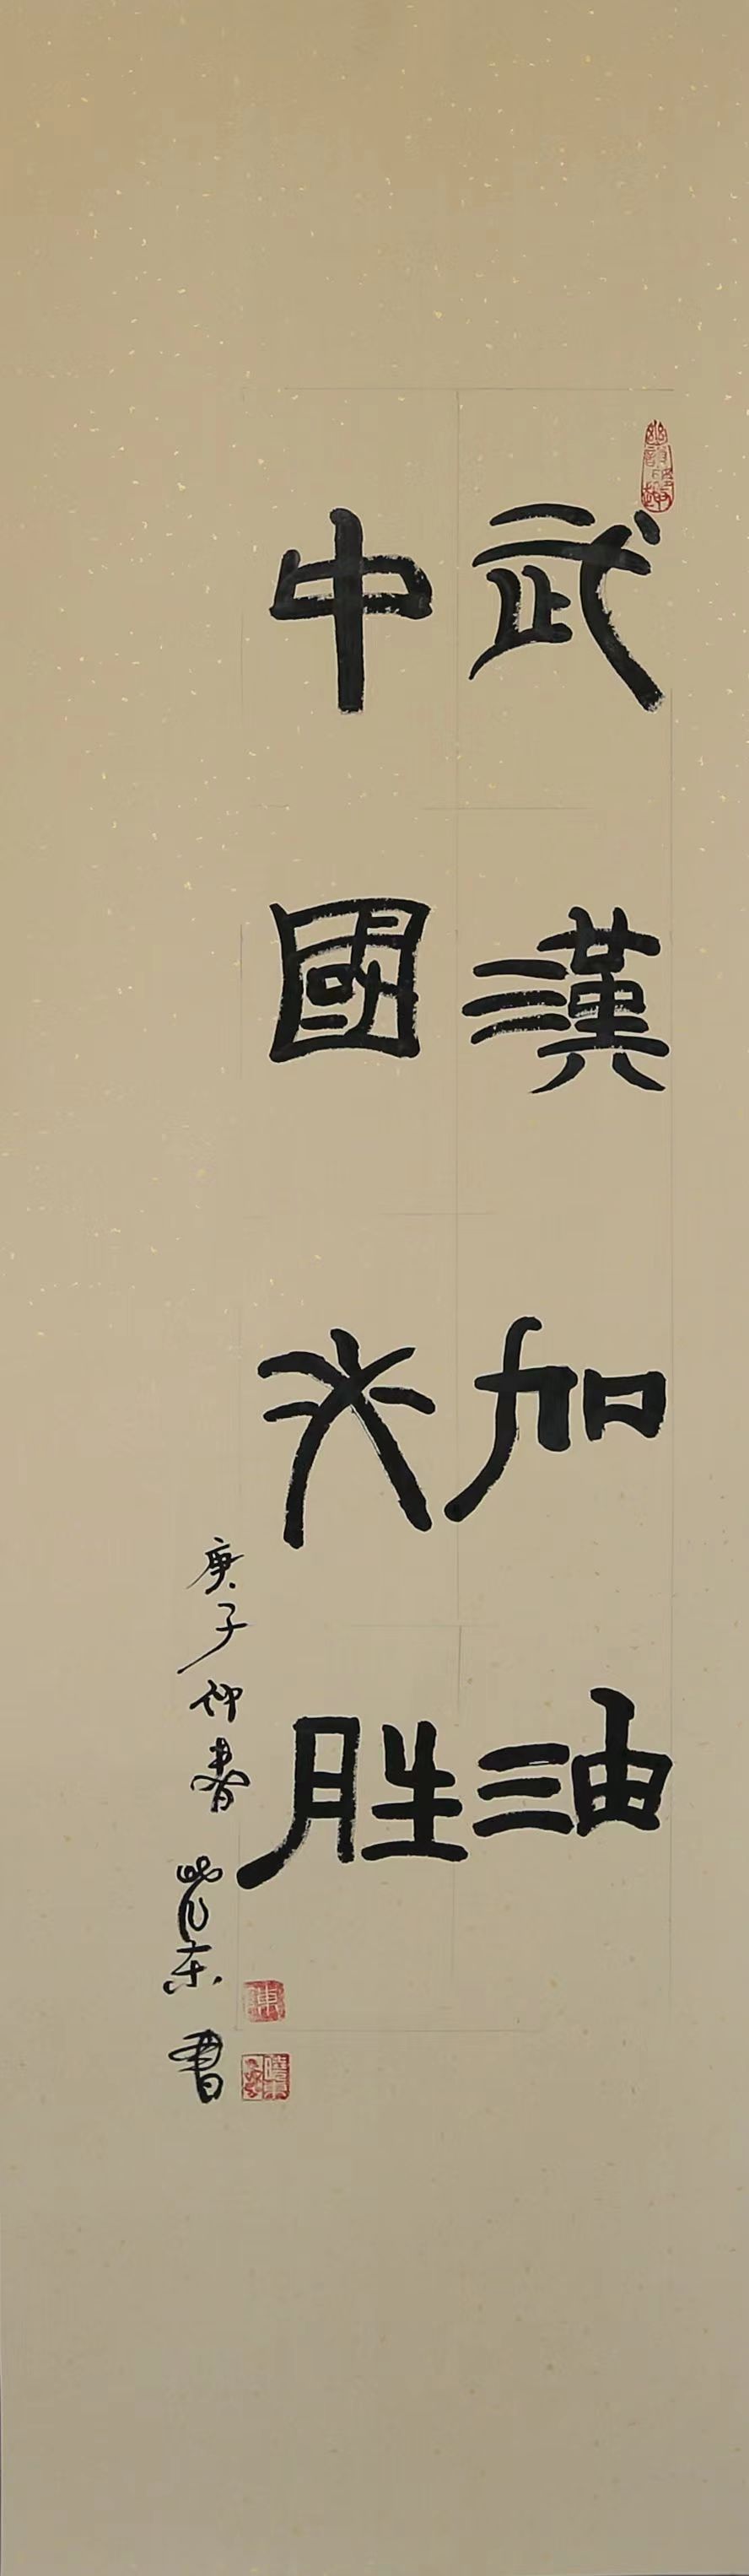 武漢加油
中國必胜
庚子仲春 东書